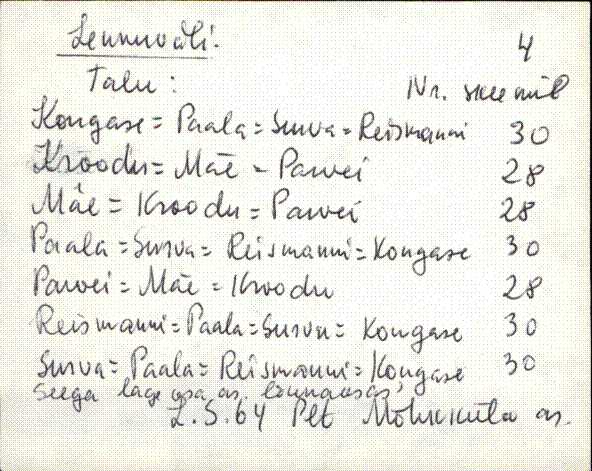 Lennuväli. 4
Talu: Nr. skeemil
Kongase = Paala = Surva = Reismanni 30
Kroodu = Mäe = Pawei 28
Mäe = Kroodu = Pawei 28
Paala = Surva = Reismanni = Kongase 30
Pawei = Mäe = Kroodu 28
Reismanni = Paala = Surva = Kongase 30
Surva = Paala = Reismanni = Kongase 30
Seega lage osa as. lõunaosas,
L.S. 64 Plt as.